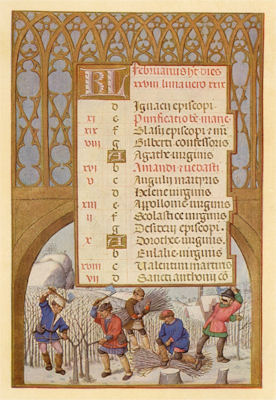 KL Februarius h't dies
xxviii luna vero xxix
d
Ignacij episcopi.
xi e Purificatio be marie
xix f Blasii episcopi & m̄r
viii g Gilberti confessoris
A Agathe virginis
xvi b Amandi & vedasti
v c Anguli martyris
d Helene virginis
xiii e Appollonie virginis
ii f Scolastice virginis
g Desiderij episcopi.
x A Dorothee virginis.
b Eulalie virginis
xviii c Valentini martiris
vii d Sancti anthonii cō